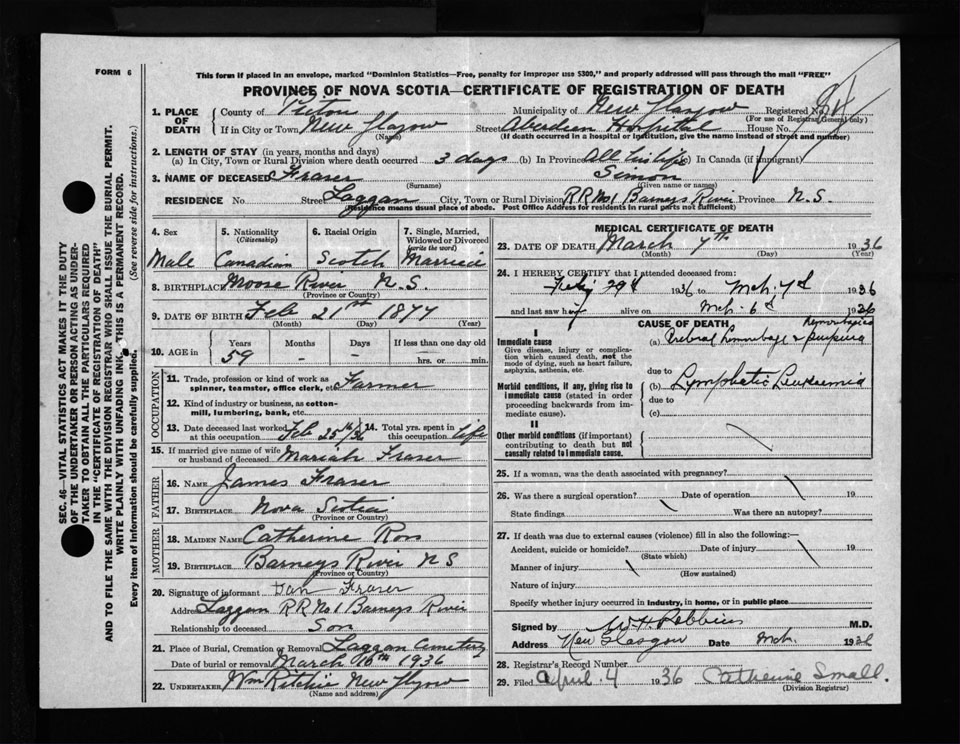 FORM 6
This form if placed in an envelope, marked "Dominion Statistics—Free, penalty for improper use $300," and properly addressed will pass through the mail "FREE"
PROVINCE OF NOVA SCOTIA—CERTIFICATE OF REGISTRATION OF DEATH
1. PLACE OF DEATH
County of Pictou Municipality of New Glasgow Registered No.
(For use of Registrar General only)
If in City or Town New Glgow Street Aberdeen Hospital House No.
(Name) (If death occurred in a hospital or institution, give the name instead of street and number)
2. LENGTH OF STAY (in years, months and days)
(a) In City, Town or Rural Division where death occurred 3 days (b) In Province All his life (c) In Canada (if immigrant)
3. NAME OF DECEASED Fraser Simon
(Surname) (Given name or names)
RESIDENCE No. Street Laggan City, Town or Rural Division RR No 1 Barneys River Province N.S.
Residence means usual place of abode. Post Office Address for residents in rural parts not sufficient)
4. Sex 5. Nationality (Citizenship) 6. Racial Origin 7. Single, Married, Widowed or Divorced (write the word)
Male Canadian Scotch Married
8. BIRTHPLACE Moose River N.S.
(Province or Country)
9. DATE OF BIRTH Feb 21st 1877
(Month) (Day) (Year)
10. AGE in Years Months Days If less than one day old
59 - - hrs. or min.
OCCUPATION
11. Trade, profession or kind of work as spinner, teamster, office clerk, etc. Farmer
12. Kind of industry or business, as cotton-mill, lumbering, bank, etc.
13. Date deceased last worked at this occupation Feb 25th/36 14. Total yrs. spent in this occupation life
15. If married give name of wife or husband of deceased Mariah Fraser
FATHER
16. NAME James Fraser
17. BIRTHPLACE Nova Scotia
(Province or Country)
MOTHER
18. MAIDEN NAME Catherine Ross
19. BIRTHPLACE Barneys River NS
(Province or Country)
20. Signature of informant Dan Fraser
Address Laggan RR No 1 Barneys River
Relationship to deceased Son
21. Place of Burial, Cremation or Removal Laggan Cemetery
Date of burial or removal March 10th 1936
22. UNDERTAKER Wm Ritchie New Glgow
(Name and address)
MEDICAL CERTIFICATE OF DEATH
23. DATE OF DEATH March 7th 1936
(Month) (Day)
24. I HEREBY CERTIFY that I attended deceased from:
29d 1936 to Mch. 7d 1936
and last saw him alive on Mch. 6d 1936
CAUSE OF DEATH
I
Immediate cause
Give disease, injury, or complication which caused death, not the mode of dying, such as heart failure, asphyxia, asthenia, etc.
(a) Cerebral hemorrhage & Hemorrhagica purpura
due to
Morbid conditions, if any, giving rise to immediate cause (stated in order proceeding backwards from immediate cause).
(b) Lymphatic Leukaemia
due to
(c)
II
Other morbid conditions (if important) contributing to death but not causally related to immediate cause.
25. If a woman, was the death associated with pregnancy?
26. Was there a surgical operation? Date of operation 19
State findings Was there an autopsy?
27. If death was due to external causes (violence) fill in also the following:—
Accident, suicide or homicide? Date of injury 19
(State which)
Manner of injury
(How sustained)
Nature of injury
Specify whether injury occurred in industry, in home, or in public place
Signed by W.H. Robbins M.D.
Address New Glasgow Date Mch. 1936
28. Registrar's Record Number
29. Filed April 4 1936 Catherine Small.
(Division Registrar)
SEC. 46—VITAL STATISTICS ACT MAKES IT THE DUTY
OF THE UNDERTAKER OR PERSON ACTING AS UNDER-
TAKER TO OBTAIN ALL THE PARTICULARS REQUIRED
IN THE "CERTIFICATE OF REGISTRATION OF DEATH"
AND TO FILE THE SAME WITH THE DIVISION REGISTRAR WHO SHALL ISSUE THE BURIAL PERMIT.
WRITE PLAINLY WITH UNFADING INK. THIS IS A PERMANENT RECORD.
Every item of information should be carefully supplied. (See reverse side for instructions.)